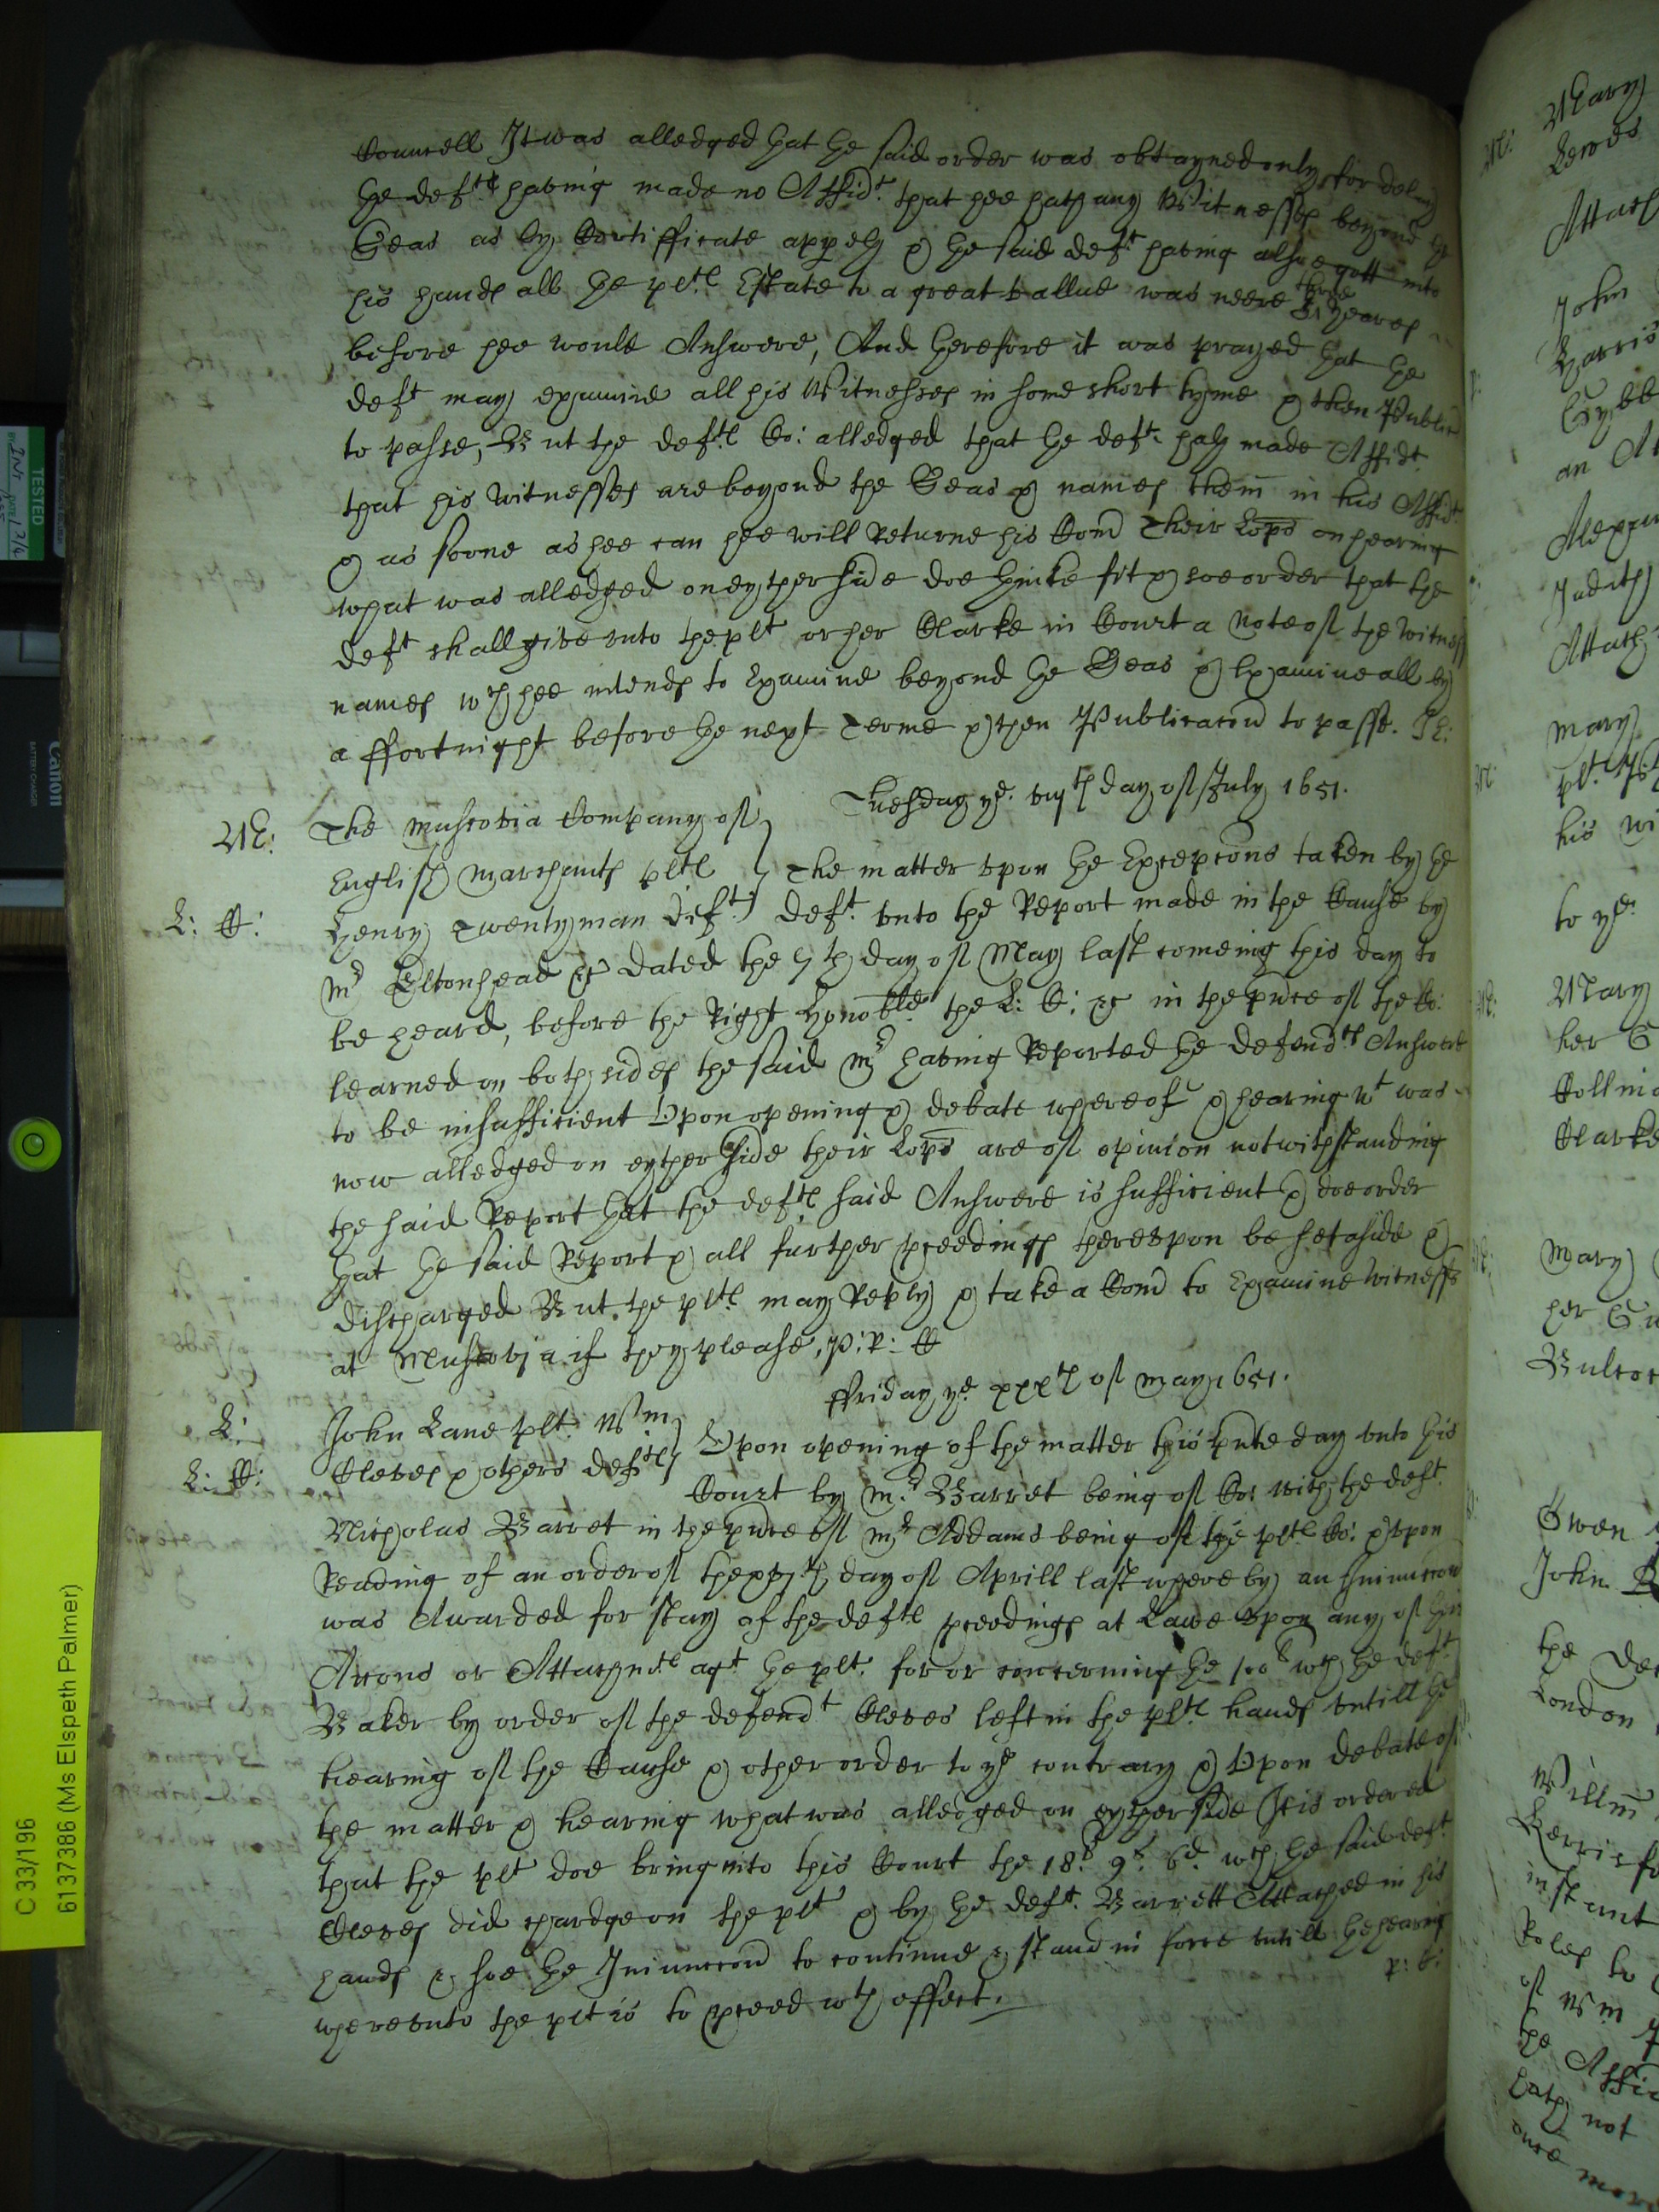 Councell It was alledged that the said order was obtayned only for delay
the deft having made no Affidt that hee hath any Witnesses beyond the
Seas as by Certifficate appeth & the said deft having alsoe gott into
his hands all the plts Estate to a great vallue was neere three yeares
before hee would Answere, And therefore it was prayed that the
deft may examine all his Witnesses in some short tyme & then Publicacon
to passe, But the defts Co: alledged that the deft hath made Affidt
that his Witnesses are beyond the Seas & names them in his Affidt
& as soone as hee can hee will Returne his Comd Their Lopps on hearing
what was alledged on eyther side doe thinke fit & soe order that the
deft shall give unto the plt or her Clarke in Court a note of the Witness
names wch hee intends to Examine beyond the Seas & Examine all by
a ffortnight before the next Terme & then Publicacon to passe.
Tuesday ye viijth day of July 1651.
M:
The Muscovia Company of
English Marchants plts
The matter upon the Excepcons taken by the
L: C:
Henry Twentyman Deft
deft unto the Report made in the Cause by
Mr Eltonhead &c dated the 7th day of May last comeing this day to
be heard, before the Right Honoble the L: C: &c in the pnce of the Co:
learned on both sides the said Mr having Reported the defendts Answere
to be insufficient Upon opening & debate whereof & hearing wt was
now alledged on eyther side their Lopps are of opinion notwithstanding
the said Report that the defts said Answere is sufficient & doe order
that the said Report & all further pceedings thereupon be set aside &
discharged But the plts may Reply & take a Comd to Examine Witnesses
at Muscovia if they please, P: R: C
ffriday ye xxxth of May 1651.
L:
John Lane plt Wm
L: C:
Cleves & others defts
Upon opening of the matter this pnte day unto this
Court by Mr Barret being of Co: with the deft
Nicholas Barret in the pnce of Mr Addams being of the plts Co: & upon
Reading of an order of the xvjth day of Aprill last whereby an Iniunccon
was Awarded for stay of the defts pceedings at Lawe upon any of their
Accons or Attachmts agt the plt for or concerning the 100l wch the deft
Baker by order of the defendt Cleves left in the plts hands untill the
hearing of the Cause & other order to ye contrary & Upon debate of
the matter & hearing what was alledged on eyther side It is ordered
that the plt doe bring into this Court the 18l 9s 6d wch the said deft
Cleves did chardge on the plt & by the deft Barrett Attached in his
hands & soe the Iniunccon to continue & stand in force untill the hearing
whereunto the plt is to pceed wth effect.
TESTED
Canon
BATTERY CHARGER
C 33/196
6137386 (Ms Elspeth Palmer)
Mary
Attach
John
Harris
an
Judith
Attach
mary
his wi
to ye
Mary
her
Clarke
Mary
her
Owen
John
the
London
instant
of Wm
not